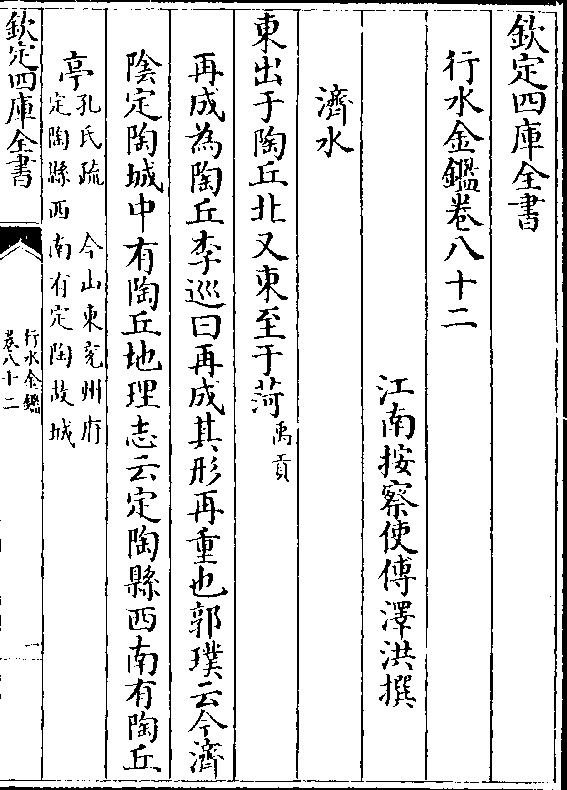 欽定四庫全書
行水金鑑卷八十二
江南按察使傅澤洪撰
濟水
東出于陶丘北又東至于菏禹貢
再成為陶丘李巡曰再成其形再重也郭璞云今濟
陰定陶城中有陶丘地理志云定陶縣西南有陶丘
亭孔氏疏　今山東兖州府
定陶縣西南有定陶故城
欽定四庫全書
行水金鑑
卷八十二
一